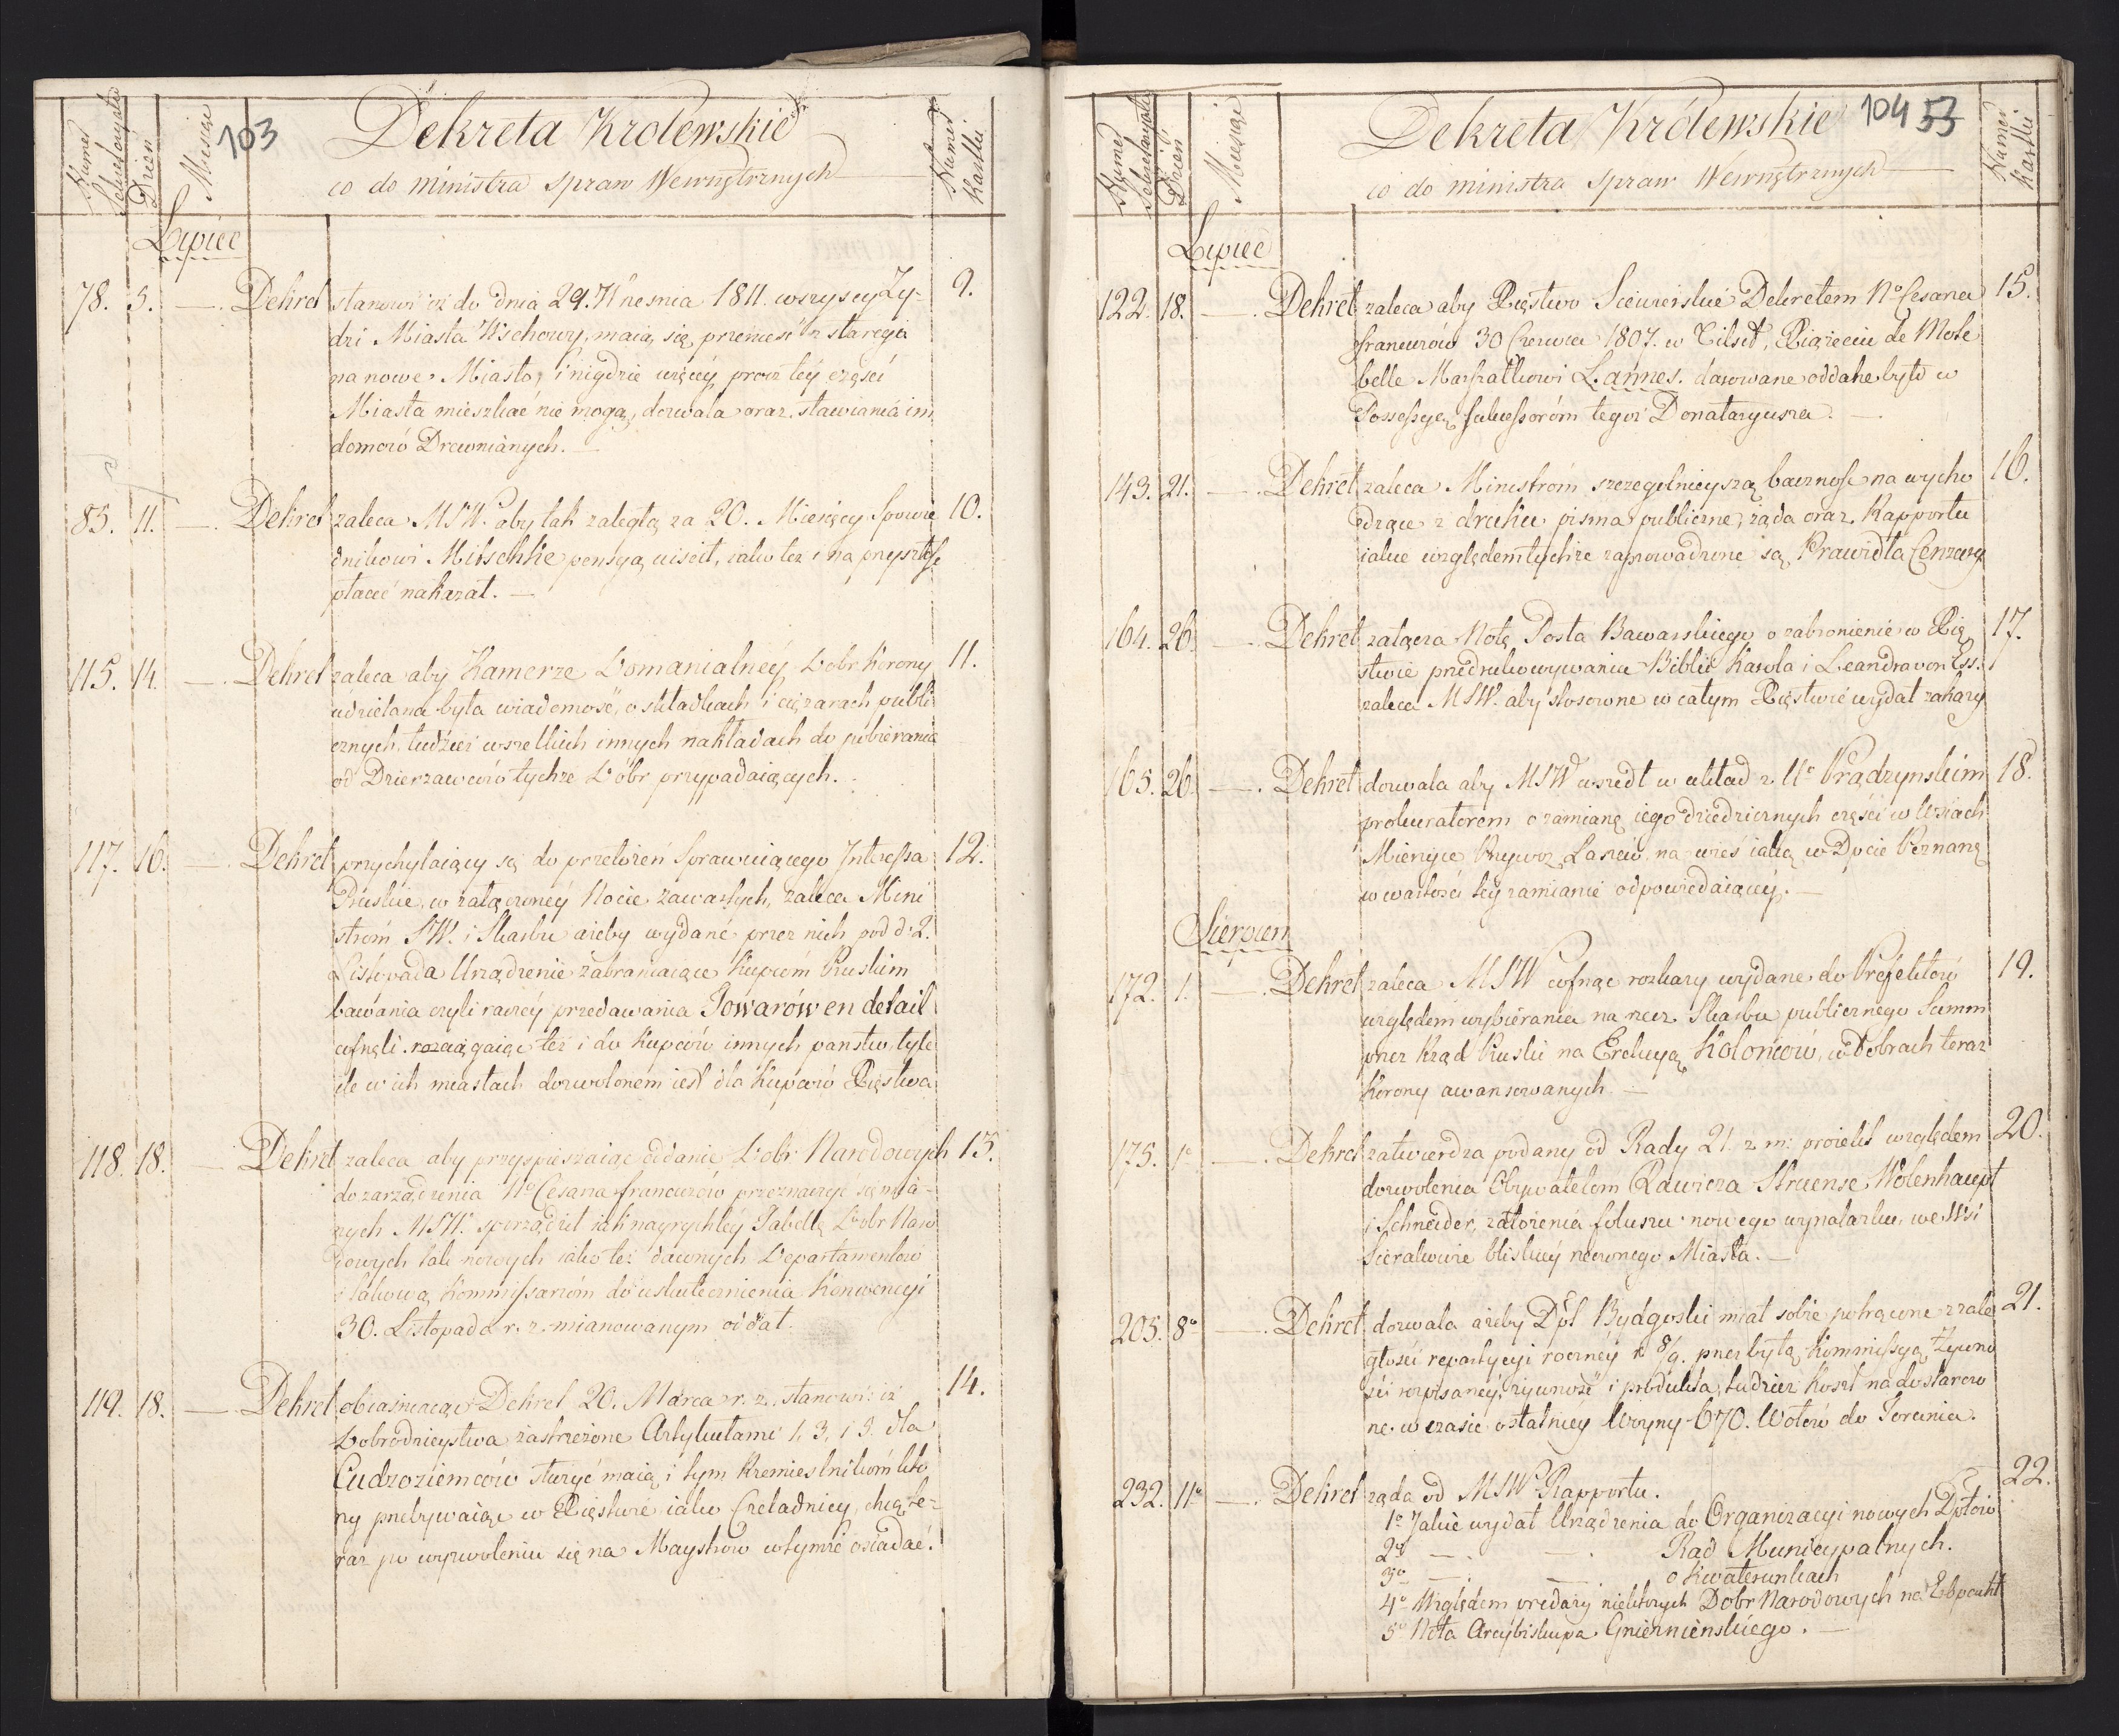 103
Dekreta Krolewskie
co do ministra spraw Wewnętrznych
Numer
Sekretaryatu
Dzień
Miesiąc
Numer
Kartki
Lipiec
78. 5. —. Dekret stanowi iż do dnia 29. Wrzesnia 1811. wszyscy Ży- 9.
dzi Miasta Wschowy, maią się przeniesć z starego
na nowe Miasto, i nigdzie więcey procz tey części
Miasta mieszkać nie mogą, dozwala oraz stawiania im
domów Drewnianych. —
83. 11. —. Dekret zaleca MSW. aby tak zaległą za 20. Miesięcy Spowie 10.
dnikowi Mitschke pensyą uiścił, iako też i na przyszłosc
płacić nakazał. —
115. 14. —. Dekret zaleca aby Kamerze Domanialney Dobr Korony 11.
udzielana była wiadomość, o składkach i ciężarach publi
cznych, tudzież wszelkich innych nakładach do pobierania
od Dzierzawców tychże Dóbr przypadaiących.
117. 16. —. Dekret przychylaiący się do przełożeń Sprawuiącego Interessa 12.
Pruskie, w załączoney Nocie zawartych, zaleca Mini
strom SW. i Skarbu ażeby wydane przez nich pod d: 2.
Listopada Urządzenie zabraniaiące Kupcom Pruskim
bawienia czyli raczey przedawania Towarów en detail
cofnęli. rozciągaiąc też i do Kupców innych panstw, tyle
ile w ich miastach dozwolonem iest dla Kupców Xięstwa
118. 18. — Dekret zaleca aby przyspieszaiąc oddanie Dobr Narodowych 13.
do zarządzenia No Cesarza francuzów przeznaczyć się maią-
cych MSW. sporządził iak nayrychley Tabellę Dobr Naro
dowych tak nowych iako też dawnych Departamentow
i takową Kommissarzóm do uskutecznienia Konwencyi
30. Listopada r. z. mianowanym oddał.
119. 18. — Dekret obiaśniaiąc Dekret 20. Marca r. z. stanowi: iż 14.
Dobrodzieystwa zastrzeżone Artykułami 1, 3, i 5. dla
Cudzoziemców służyć maią i tym Rzemieslnikóm któ
rzy przebywaiąc w Xięstwie iako Czeladnicy, chcą te-
raz po wyzwoleniu się na Maystrów w tymże osiadać.
104 53
Dekreta Królewskie
co do ministra Spraw Wewnętrznych
Numer
Sekretaryatu
Dzień
Miesiąc
Numer
Kartki
Lipiec
122. 18. —. Dekret zaleca aby Xięstwo Siewierskie Dekretem No Cesarza 15.
francuzów 30 Czerwca 1807. w Tilsit, Xiążęciu de Mote
belle Marszałkowi Lannes. darowane oddane było w
Possessyą sukcessoróm tegoż Donataryusza. —
143. 21. —. Dekret zaleca Ministróm szczegolnieyszą baczność na wycho 16.
dzące z druku pisma publiczne, żąda oraz Rapportu
iakie względem tychże zaprowadzone są Prawidła Cenzury
164. 26. —. Dekret załącza Notę Posła Bawarskiego o zabronienie w Xię 17.
stwie przedrukowywania Biblii Karola i Leandra von Ess.
zaleca MSW. aby stosowne w całym Xięstwie wydał zakazy
165. 26. —. Dekret dozwala aby MSW wszedł w układ z Ur Prądzynskim 18.
prokuratorem o zamianę iego dziedzicznych części w Wsiach
Mierzyce Przywóz Łaszew na wieś iaką w Dpcie Poznańs.
w wartości tey zamianie odpowiedaiącey. —
Sierpien
172. 1. —. Dekret zaleca MSW cofnąć rozkazy wydane do Prefektów 19.
względem wybierania na rzecz Skarbu publicznego Summ
przez Rząd Pruski na Erekcyą Kolonów, w Dobrach teraz
Korony awansowanych. —
175. 1o —. Dekret zatwierdza podany od Rady 21. z. m: proiekt względem 20.
dozwolenia Obywatelom Rawicza Struense, Wolenhaupt
i Schneider, założenia foluszu nowego wynalazku, we Wsi
Sierakowie bliskiey rzeczonego Miasta. —
205. 8o —. Dekret dozwala ażeby Dpt Bydgoski miał sobie potrącone z zale 21.
głości repartycyi roczney r 8/9. przez byłą Kommissyą Żywno
ści rozpisaney, żywność i produkta, tudzież Koszt na dostarczo
ne w czasie ostatniey Woyny 670. Wołów do Torunia.
232. 11o —. Dekret żąda od MSW Rapportu. 22.
1o Jakie wydał Urządzenia do Organizacyi nowych Dptów
2o — . — . Rad Municypalnych.
3o — . — . o Kwaterunkach
4o Względem przedaży niektorych Dobr Narodowych na
5o Nota Arcybiskupa Gnieznienskiego. —